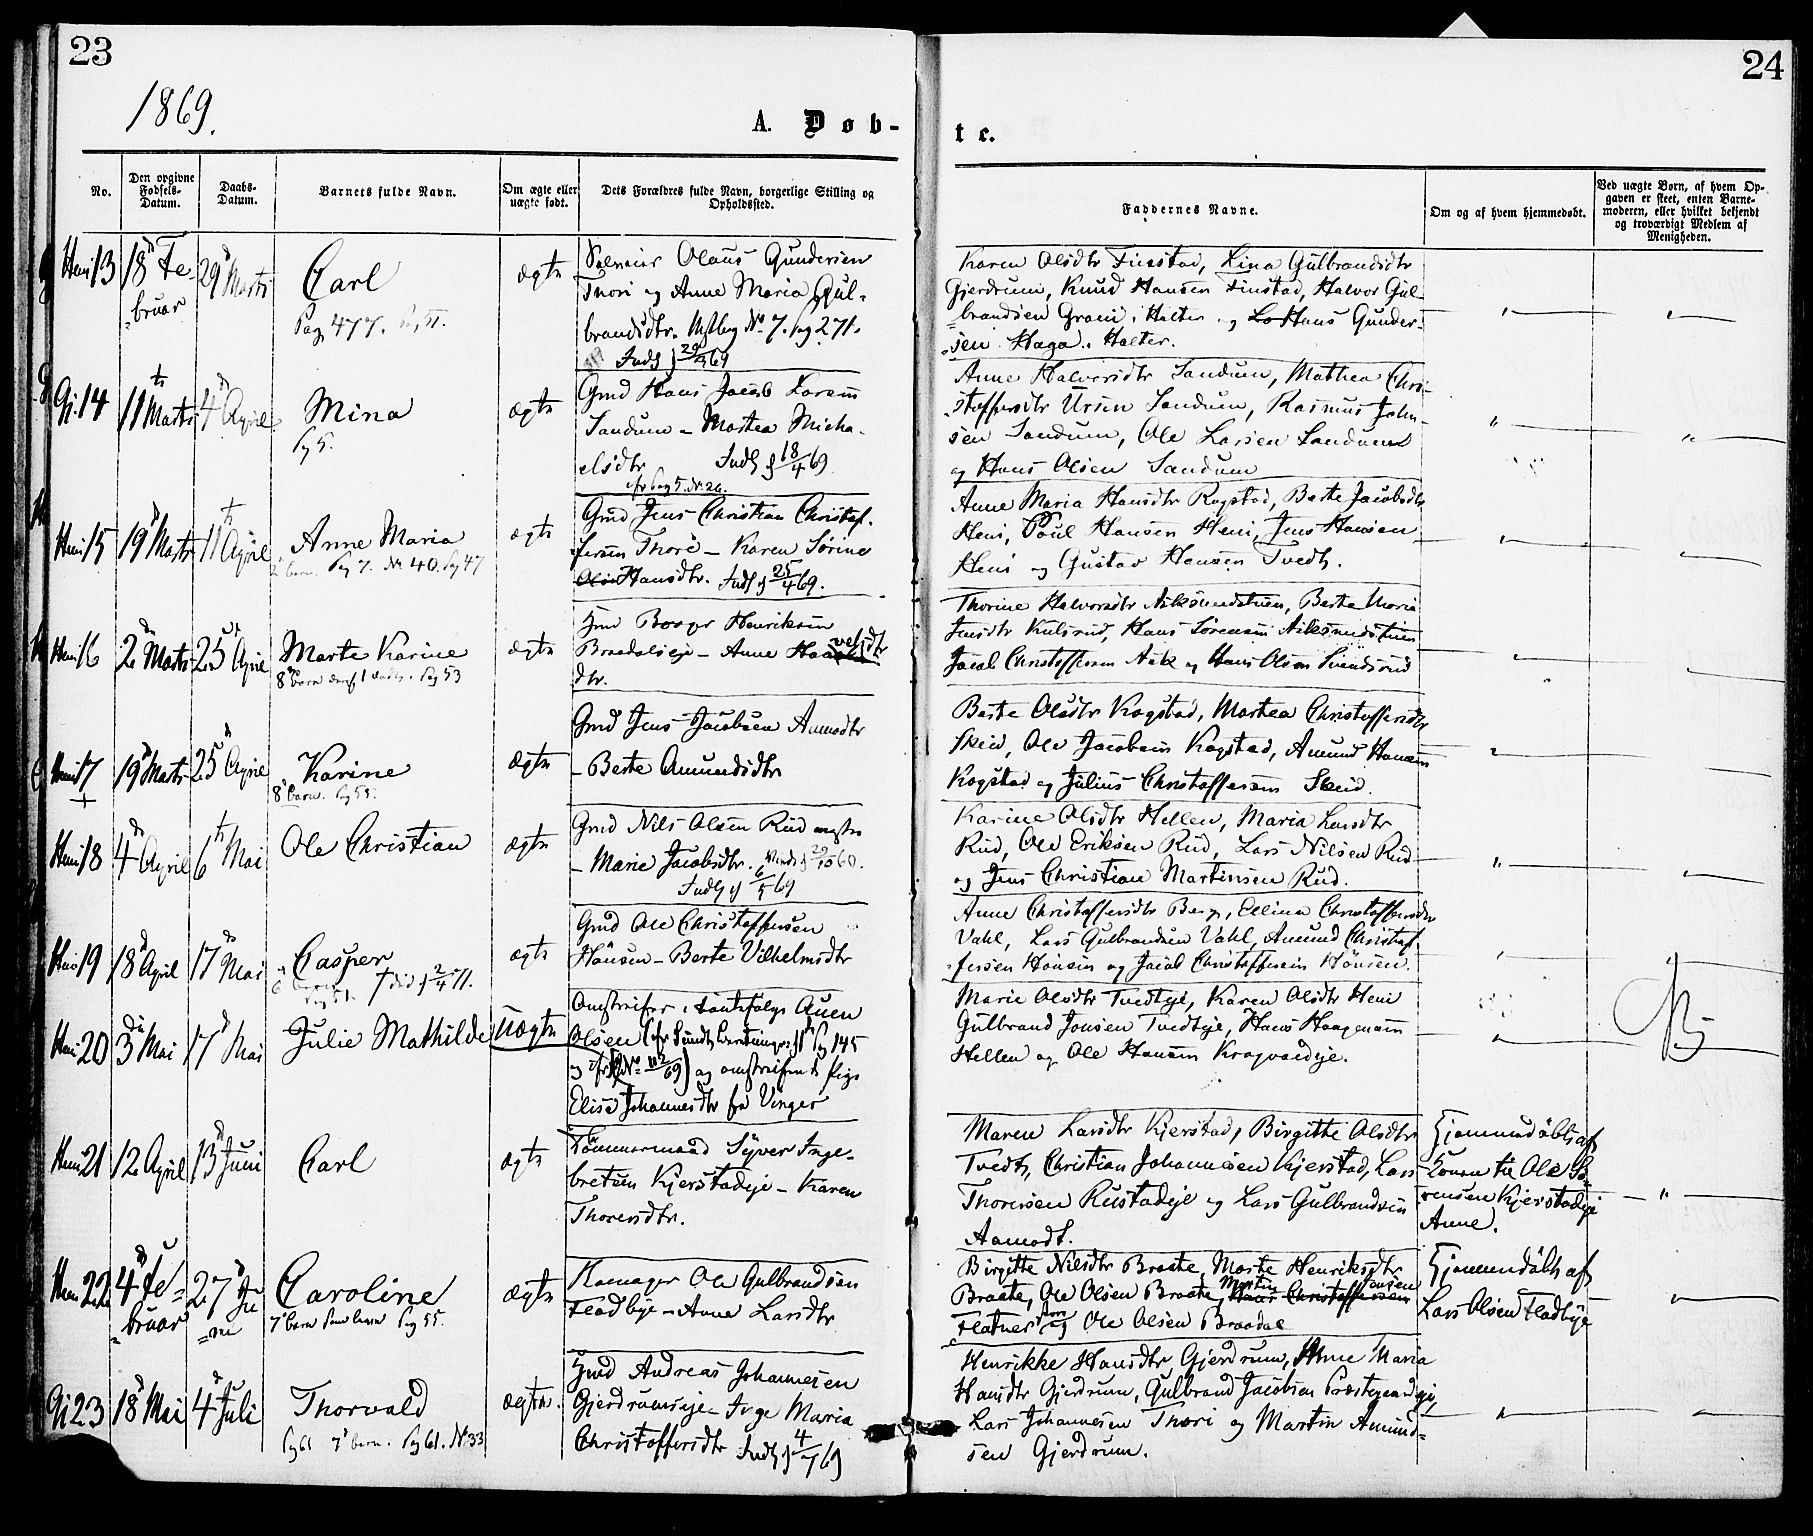 23
24
1869.
A. Døb-
te.
No.
Den opgivne Fødsels-Datum.
Daabs-Datum.
Barnets fulde Navn.
Om ægte eller uægte født.
Dets Forældres fulde Navn, borgerlige Stilling og Opholdssted.
Faddernes Navne.
Om og af hvem hjemmedøbt.
Ved uægte Børn, af hvem Op-
gaven er skeet, enten Barne-
moderen, eller hvilket bekjendt
og troværdigt Medlem af
Menigheden.
13
18 Fe-
bruar
29 Marts
Carl
Pag 477.
ægte
Olaus Gundersen
Thori og Anne Maria Gul-
brandsdtr. No. 7. Pag 271.
Karen Olsdtr Finstad, Lina Gulbrandsdtr
Gjerdrum, Knud Hansen Finstad, Halvor Gul-
brandsen Grani, Holter og Hans Gunder-
sen Haga, Holter.
14
11 Marts
4 April
Mina
Pg 5.
ægte
Gmd Hans Jacob Larsen
Sandum - Martea Micha-
elsdtr
18/4 69.
Pag 5. No. 26.
Anne Halvorsdtr Sandum, Mathea Chri-
stoffersdtr Ursin Sandum, Rasmus Joh-
sen Sandum, Ole Larsen Sandum
og Hans Olsen Sandum
15
19 Marts
11 April
Anne Maria
Pg 7. No 40. Pag 47
ægte
Gmd Jens Christian Christof-
fersen Thori - Karen Sørine
Hansdtr. 25/4 69.
Anne Maria Hansdtr Rogstad, Berte Jacobsdtr
Heni, Poul Hansen Heni, Jens Hansen
Heni og Gustav Hansen Tvedt.
16
2 Marts
25 April
Marte Karine
8 barn Pag 53
ægte
Henriksen
Braadaleje - Anne
dtr.
Thorine Halvorsdtr Berte Maria
Jensdtr Kulsrud, Hans Sørensen
Jacob Christoffersen Ask og Hans Olsen Svendsrud
17
19 Marts
25 April
Karine
8 barn. Pg 55.
ægte
Gmd Jens Jacobsen Aamodt
- Berte Amundsdtr
Berte Olsdtr Kogstad, Martea Christoffersdtr
Skeid, Ole Jacobsen Kogstad, Amund Hansen
Kogstad og Julius Christoffersen Skeid.
18
4 April
6 Mai
Ole Christian
ægte
Gmd Nils Olsen Rud
- Marie Jacobsdtr. 29/10 60.
6/5 69
Karine Olsdtr Hellen, Maria Larsdtr
Rud, Ole Eriksen Rud, Lars Nilsen Rud
og Jens Christian Martinsen Rud.
19
18 April
17 Mai
Casper
2/4 71.
ægte
Gmd Ole Christoffersen
Hønsen - Berte Vilhelmsdtr
Anne Christoffersdtr Berg, Ellina Christoffersdtr
Vahl, Lars Gulbrandsen Vahl, Amund Christof-
fersen Hønsen og Jacob Christoffersen Hønsen.
20
3 Mai
17 Mai
Julie Mathilde
Uægte
Omstreifer
Olsen Pg 145
og omstreifende Pige
Elise Johannesdtr fra Vinger
Marie Olsdtr Tvedteje, Karen Olsdtr Heni
Gulbrand Jonsen Tvedteje, Hans Haagensen
Hellen og Ole Hansen Kragvoldeje.
21
12 April
13 Juni
Carl
ægte
Tømmermand Syver Inge-
bretsen Kjerstadeje - Karen
Thoresdtr.
Maren Larsdtr Kjerstad, Birgitte Olsdtr
Tvedt, Christian Johannesen Kjerstad, Lars
Thoresen Rustadeje og Lars Gulbrandsen
Aamodt.
Hjemmedøbt af
Konen til Ole Sø-
rensen Kjerstadeje
Anne.
22
4 Fe-
bruar
27 Ju-
ni
Caroline
7 barn Pag 55.
ægte
Ole Gulbrandsen
Fladbye - Anne Larsdtr
Birgitte Nilsdtr Braate, Marte Henriksdtr
Braate, Ole Olsen Braate, Martin Christoffersen
Flatner og Ole Olsen Braadal
Hjemmedøbt af
Lars Olsen Fladbye
23
18 Mai
4 Juli
Thorvald
Pg 61 7 barn. Pag 61. No 33
ægte.
Andreas Johannesen
Gjerdrumseje - Inge Maria
Christoffersdtr 4/7 69
Henrikke Hansdtr Gjerdrum, Anne Maria
Hansdtr Gjerdrum, Gulbrand Jacobsen Præstegaardeje,
Lars Johannesen Thori og Martin Amund-
sen Gjerdrum.